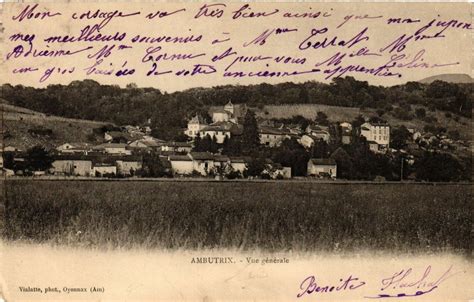 Mon corsage va très bien ainsi que ma jupon
mes meilleurs souvenirs à Mme Terrat, Mme
Adrienne, Mme Cornu et pour vous Melle Céline
un gros baisées de votre ancienne apprentie
AMBUTRIX. - Vue générale
Vialatte, phot., Oyonnax (Ain)
Benoite